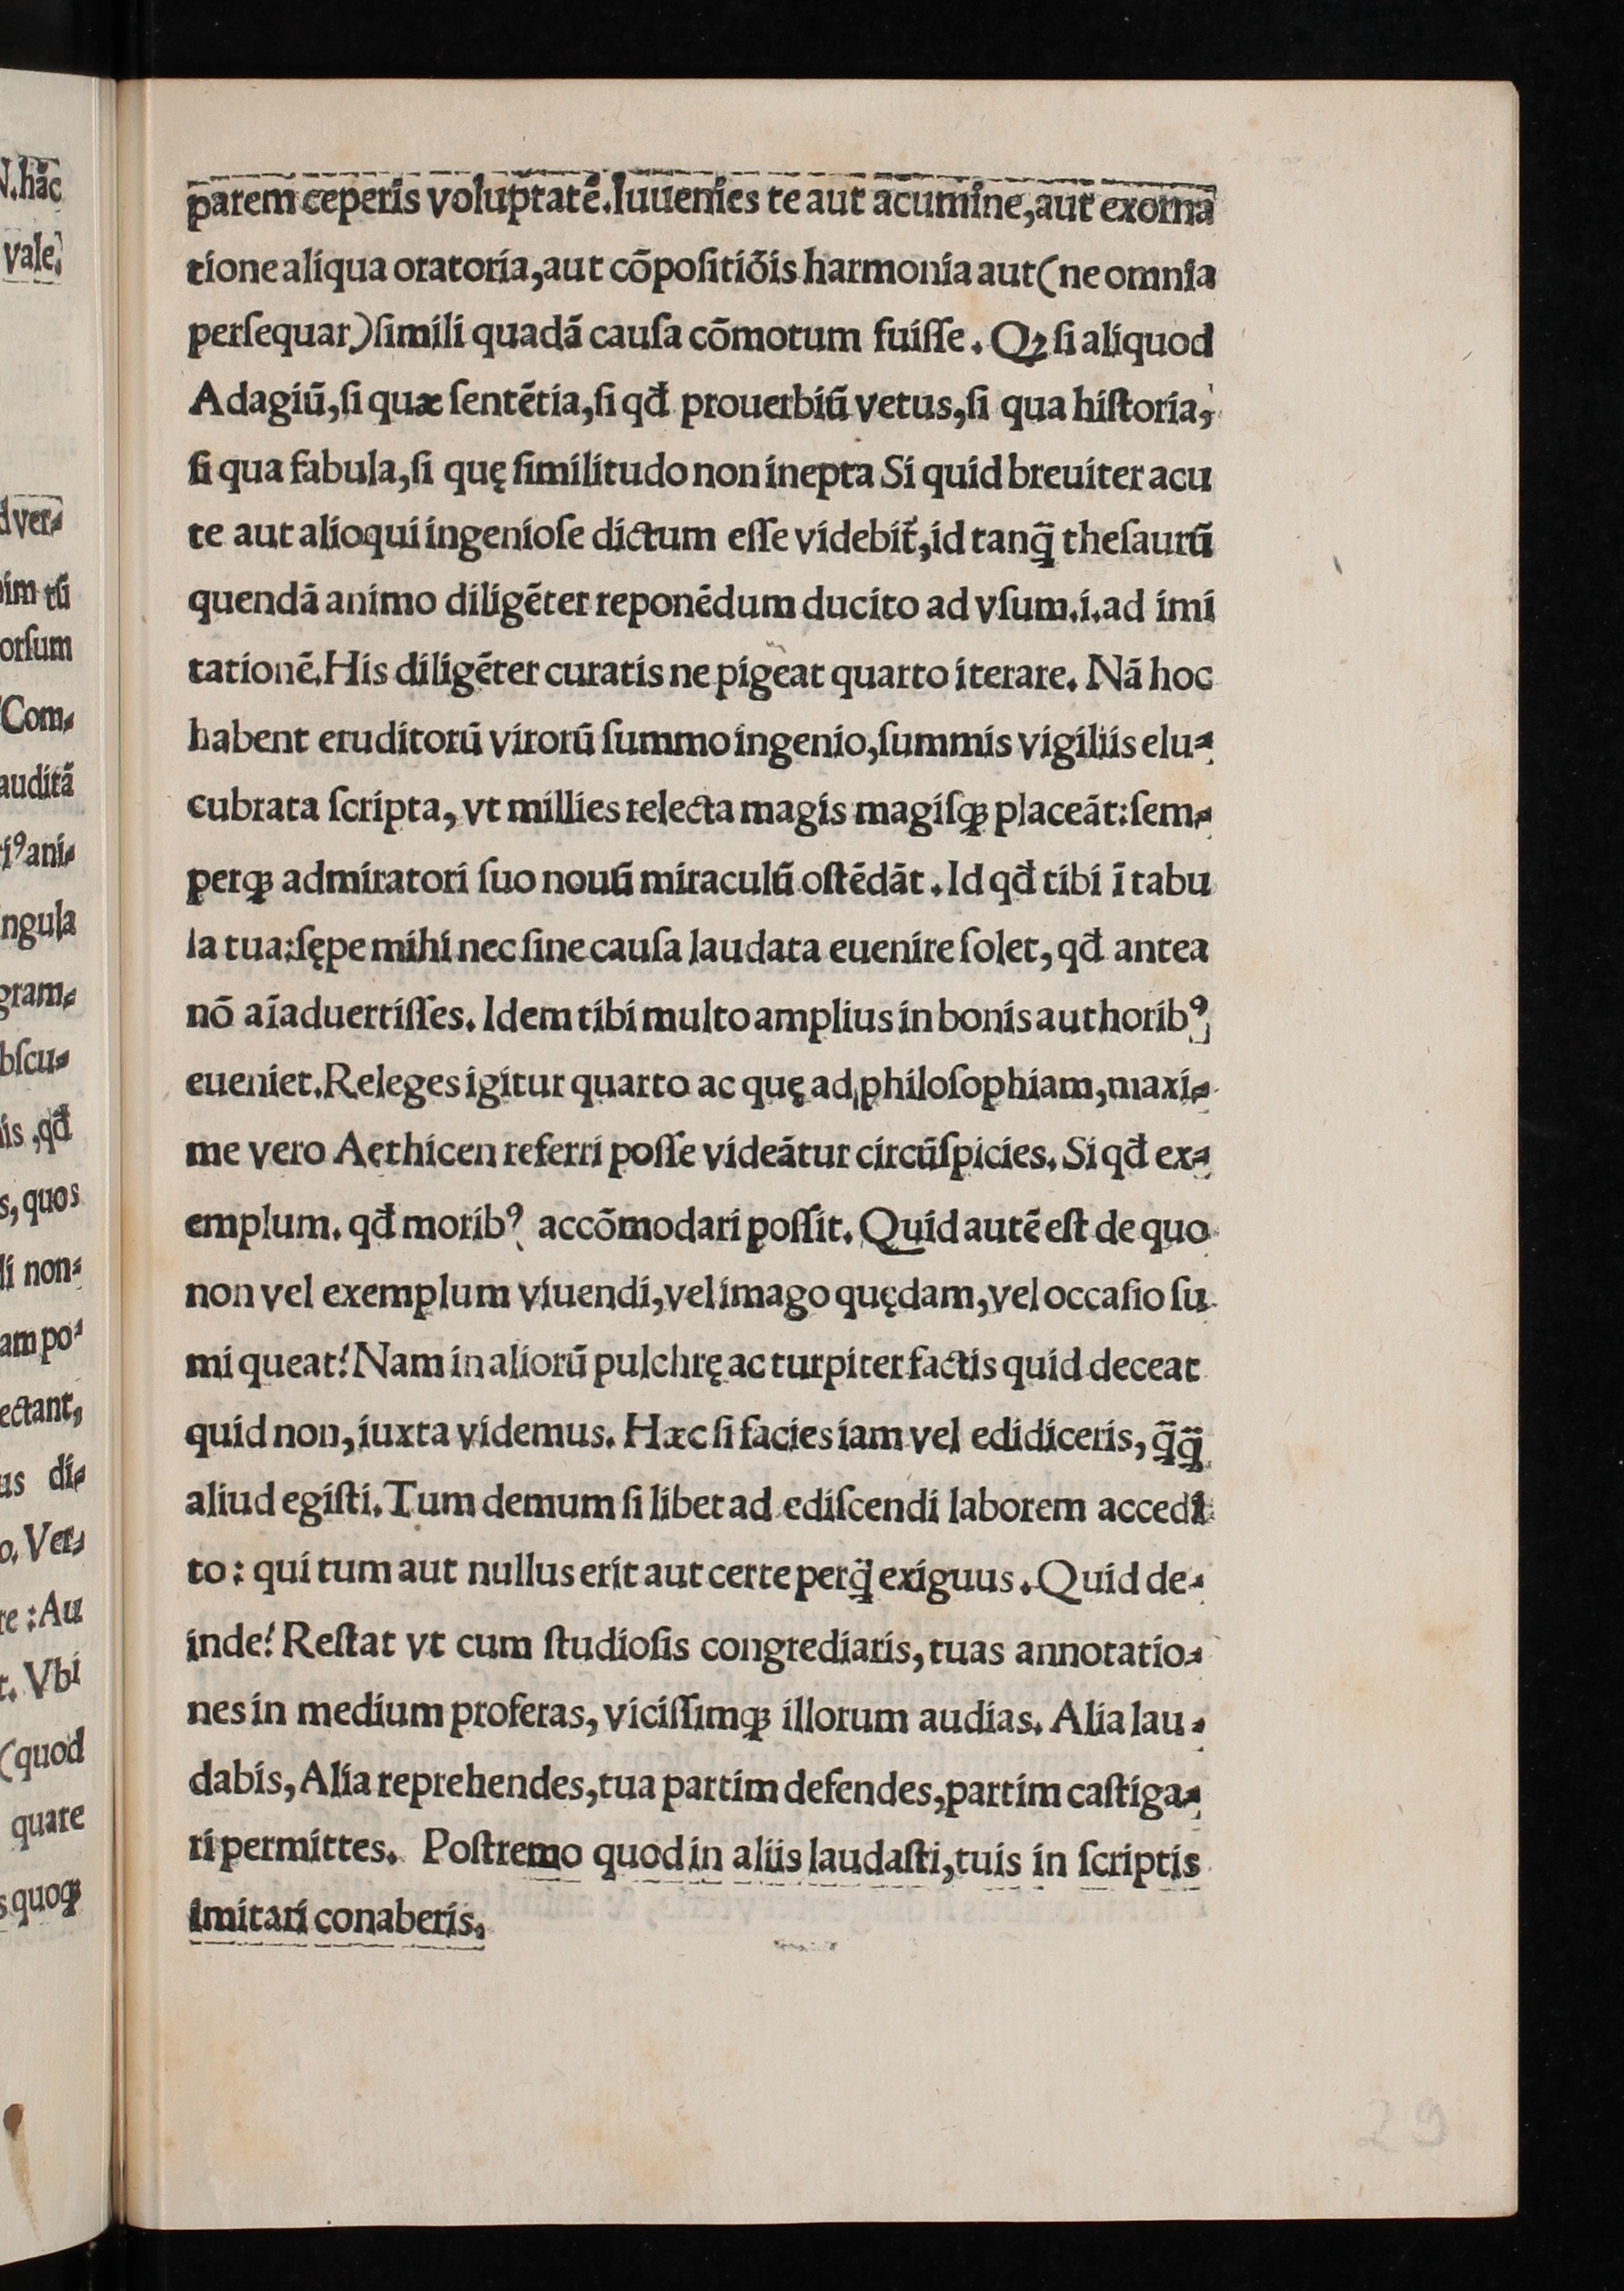 parem ceperis voluptatē.Iuuenies te aut acumine,aut exorna
tione aliqua oratoria,aut cōpoſitiōis harmonia aut(ne omnia
perſequar)ſimili quadā cauſa cōmotum fuiſſe. Qꝫ ſi aliquod
Adagiū,ſi quæ ſentētia,ſi qđ prouerbiū vetus,ſi qua hiſtoria,
ſi qua fabula,ſi quę ſimilitudo non inepta Si quid breuiter acu
te aut alioqui ingenioſe dictum eſſe videbit̃,id tanq̃ theſaurū
quendā animo diligēter reponēdum ducito ad vſum.i.ad imi
tationē.His diligēter curatis ne pigeat quarto iterare. Nā hoc
habent eruditorū virorū ſummo ingenio,ſummis vigiliis elu⸗
cubrata ſcripta, vt millies relecta magis magiſqꝫ placeāt:ſem⸗
perqꝫ admiratori ſuo nouū miraculū oſtēdāt. Id qđ tibi ī tabu
la tua:ſępe mihi nec ſine cauſa laudata euenire ſolet, qđ antea
nō aīaduertiſſes. Idem tibi multo amplius in bonis authoribꝰ
eueniet.Releges igitur quarto ac quę ad philoſophiam,maxi⸗
me vero Aethicen referri poſſe videātur circūſpicies. Si qđ ex⸗
emplum. qđ moribꝰ accōmodari poſſit. Quid autē eſt de quo
non vel exemplum viuendi,vel imago quędam,vel occaſio ſu
mi queat? Nam in aliorū pulchrę ac turpiter factis quid deceat
quid non, iuxta videmus. Hæc ſi facies iam vel edidiceris, q̃q̃
aliud egiſti. Tum demum ſi libet ad ediſcendi laborem accedi
to: qui tum aut nullus erit aut certe perq̃ exiguus. Quid de⸗
inde? Reſtat vt cum ſtudioſis congrediaris, tuas annotatio⸗
nes in medium proferas, viciſſimqꝫ illorum audias. Alia lau⸗
dabis, Alia reprehendes,tua partim defendes,partim caſtiga⸗
ri permittes. Poſtremo quod in aliis laudaſti,tuis in ſcriptis
imitari conaberis.
29
N.hāc
vale.
dver⸗
im tū
orſum
Com⸗
auditā
iꝰ ani⸗
ngula
gram⸗
bſcu⸗
is ,qđ
s, quos
li non⸗
am po⸗
ectant,
us di⸗
o. Ver⸗
re : Au
t. Vbi
(quod
quare
s quoqꝫ